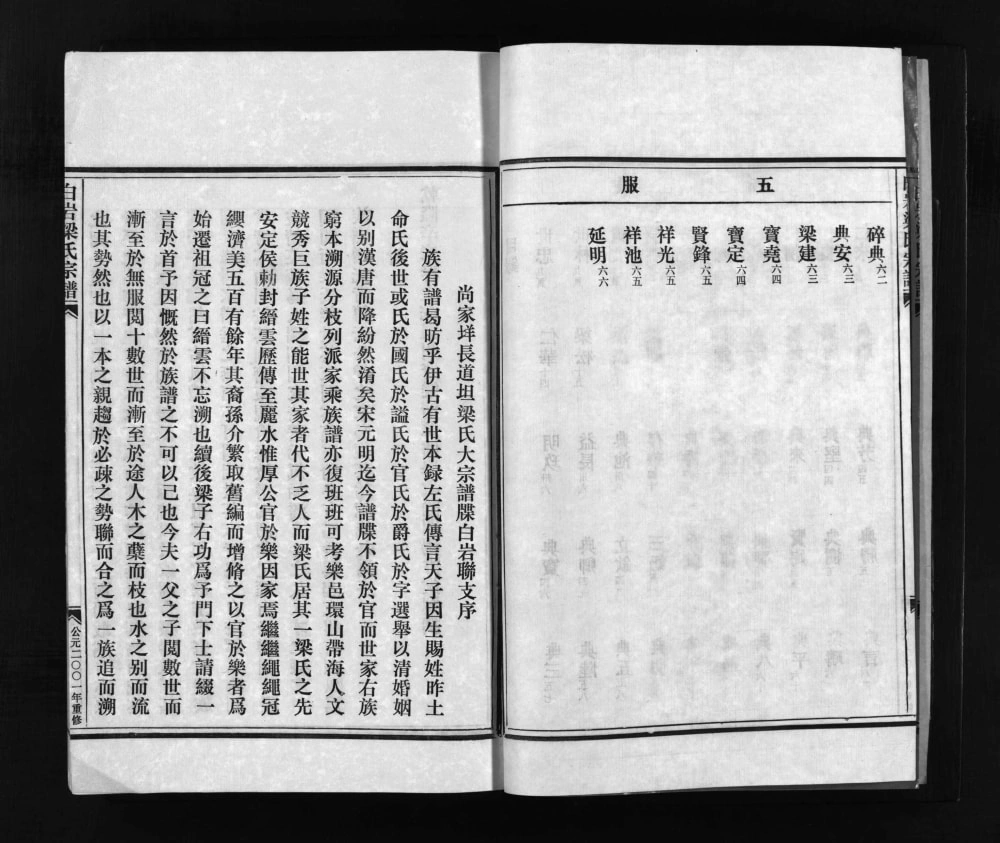 五服
碎典六二
典安六三
梁建六三
寶堯六四
寶定六四
賢鋒六五
祥光六五
祥池六五
延明六六
尚家垟長道坦梁氏大宗譜牒白岩聯支序
族有譜曷昉乎伊古有世本録左氏傳言天子因生賜姓昨土
命氏後世或氏於國氏於謚氏於官氏於爵氏於字選舉以清婚姻
以别漢唐而降紛然淆矣宋元明迄今譜牒不領於官而世家右族
窮本溯源分枝列派家乘族譜亦復班班可考樂邑環山帶海人文
競秀巨族子姓之能世其家者代不乏人而梁氏居其一梁氏之先
安定侯勅封縉雲歷傳至麗水惟厚公官於樂因家焉繼繼繩繩冠
纓濟美五百有餘年其裔孫介繁取舊編而增脩之以官於樂者爲
始遷祖冠之曰縉雲不忘溯也續後梁子右功爲予門下士請綴一
言於首予因慨然於族譜之不可以己也今夫一父之子閲數世而
漸至於無服閲十數世而漸至於途人木之蘖而枝也水之别而流
也其勢然也以一本之親趨於必疎之勢聯而合之爲一族追而溯
白岩梁氏宗譜
公元二〇〇一年重修